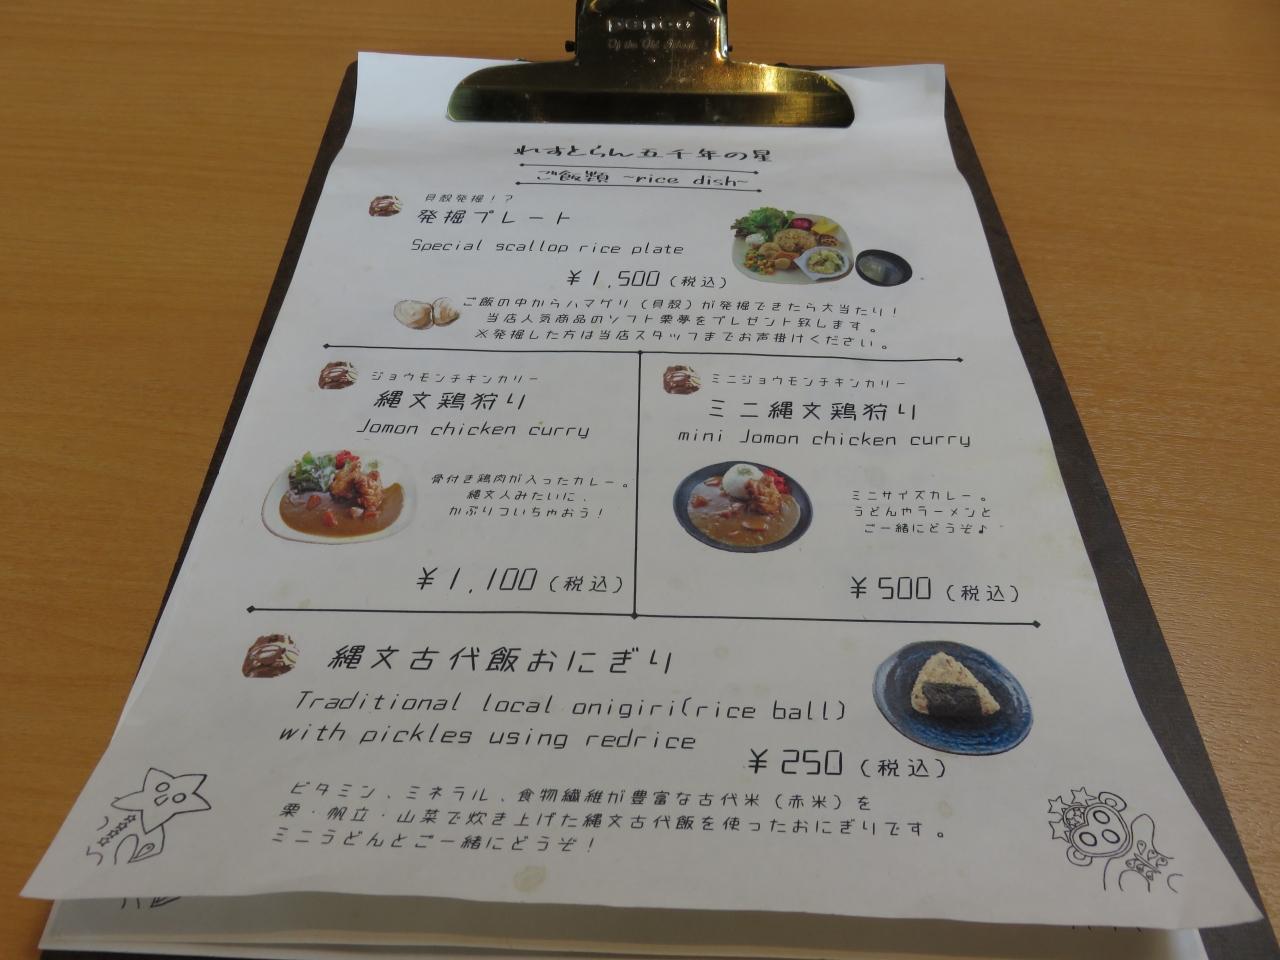 penco
Of the Old School.
れすとらん五千年の星
ご飯類 ~rice dish~
貝殻発掘!?
発掘プレート
Special scallop rice plate
¥1,500(税込)
ご飯の中からハマグリ(貝殻)が発掘できたら大当たり!
当店人気商品のソフト栗夢をプレゼント致します。
※発掘した方は当店スタッフまでお声掛けください。
ジョウモンチキンカリー
縄文鶏狩り
Jomon chicken curry
骨付き鶏肉が入ったカレー。
縄文人みたいに、
かぶりついちゃおう!
¥1,100(税込)
ミニジョウモンチキンカリー
ミニ縄文鶏狩り
mini Jomon chicken curry
ミニサイズカレー。
うどんやラーメンと
ご一緒にどうぞ♪
¥500(税込)
縄文古代飯おにぎり
Traditional local onigiri(rice ball)
with pickles using redrice
¥250(税込)
ビタミン、ミネラル、食物繊維が豊富な古代米(赤米)を
栗・帆立・山菜で炊き上げた縄文古代飯を使ったおにぎりです。
ミニうどんとご一緒にどうぞ!